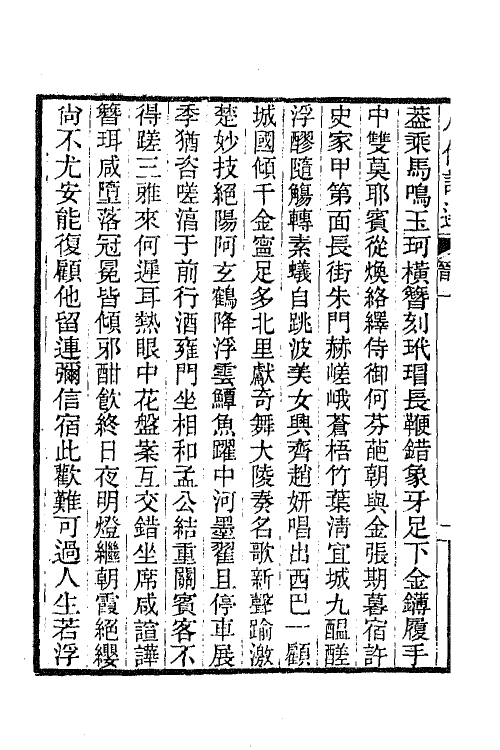 蓋乘馬鳴玉珂橫簪刻玳瑁長鞭錯象牙足下金鑮履手
中雙莫耶賓從煥絡繹侍御何芬葩朝與金張期暮宿許
史家甲第面長街朱門赫嵯峨蒼梧竹葉淸宜城九醖醝
浮醪隨觴轉素蟻自跳波美女興齊趙妍唱出西巴一顧
城國傾千金寧足多北里獻奇舞大陵奏名歌新聲踰激
楚妙技絕陽阿玄鶴降浮雲鱏魚躍中河墨翟且停車展
季猶咨嗟淳于前行酒雍門坐相和孟公結重關賓客不
得蹉三雅來何遲耳熱眼中花盤案互交錯坐席咸諠譁
簪珥咸墮落冠冕皆傾邪酣飮終日夜明燈繼朝霞絕纓
尙不尤安能復顧他留連彌信宿此歡難可過人生若浮